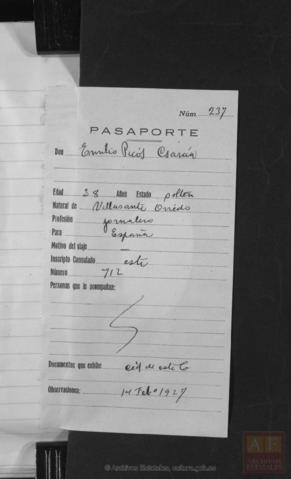 Núm. 237
PASAPORTE
Don Emilio Picós
Edad 28 Años Estado soltero
Natural de Villasante Oviedo
Profesión jornalero
Para España
Motivo del viaje —
Inscripto Consulado este
Número 712
Personas que le acompañan:
Documentos que exhibe: céd de este C
Observaciones: 14 Febº 1927
AE
ARCHIVOS ESTATALES
© Archivos Estatales, cultura.gob.es